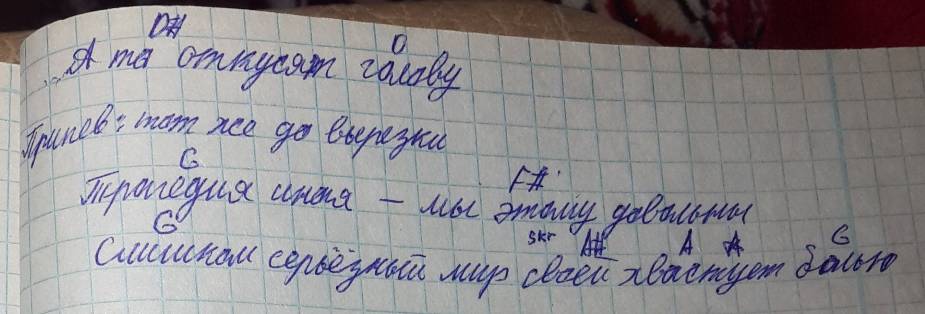 D# D
...А та откусят голову
Припев: тот же до вырезки
G F#
Трагедия иная – мы этому довольны
G skr A# A A G
Слишком серьёзный мир своей хвастует болью